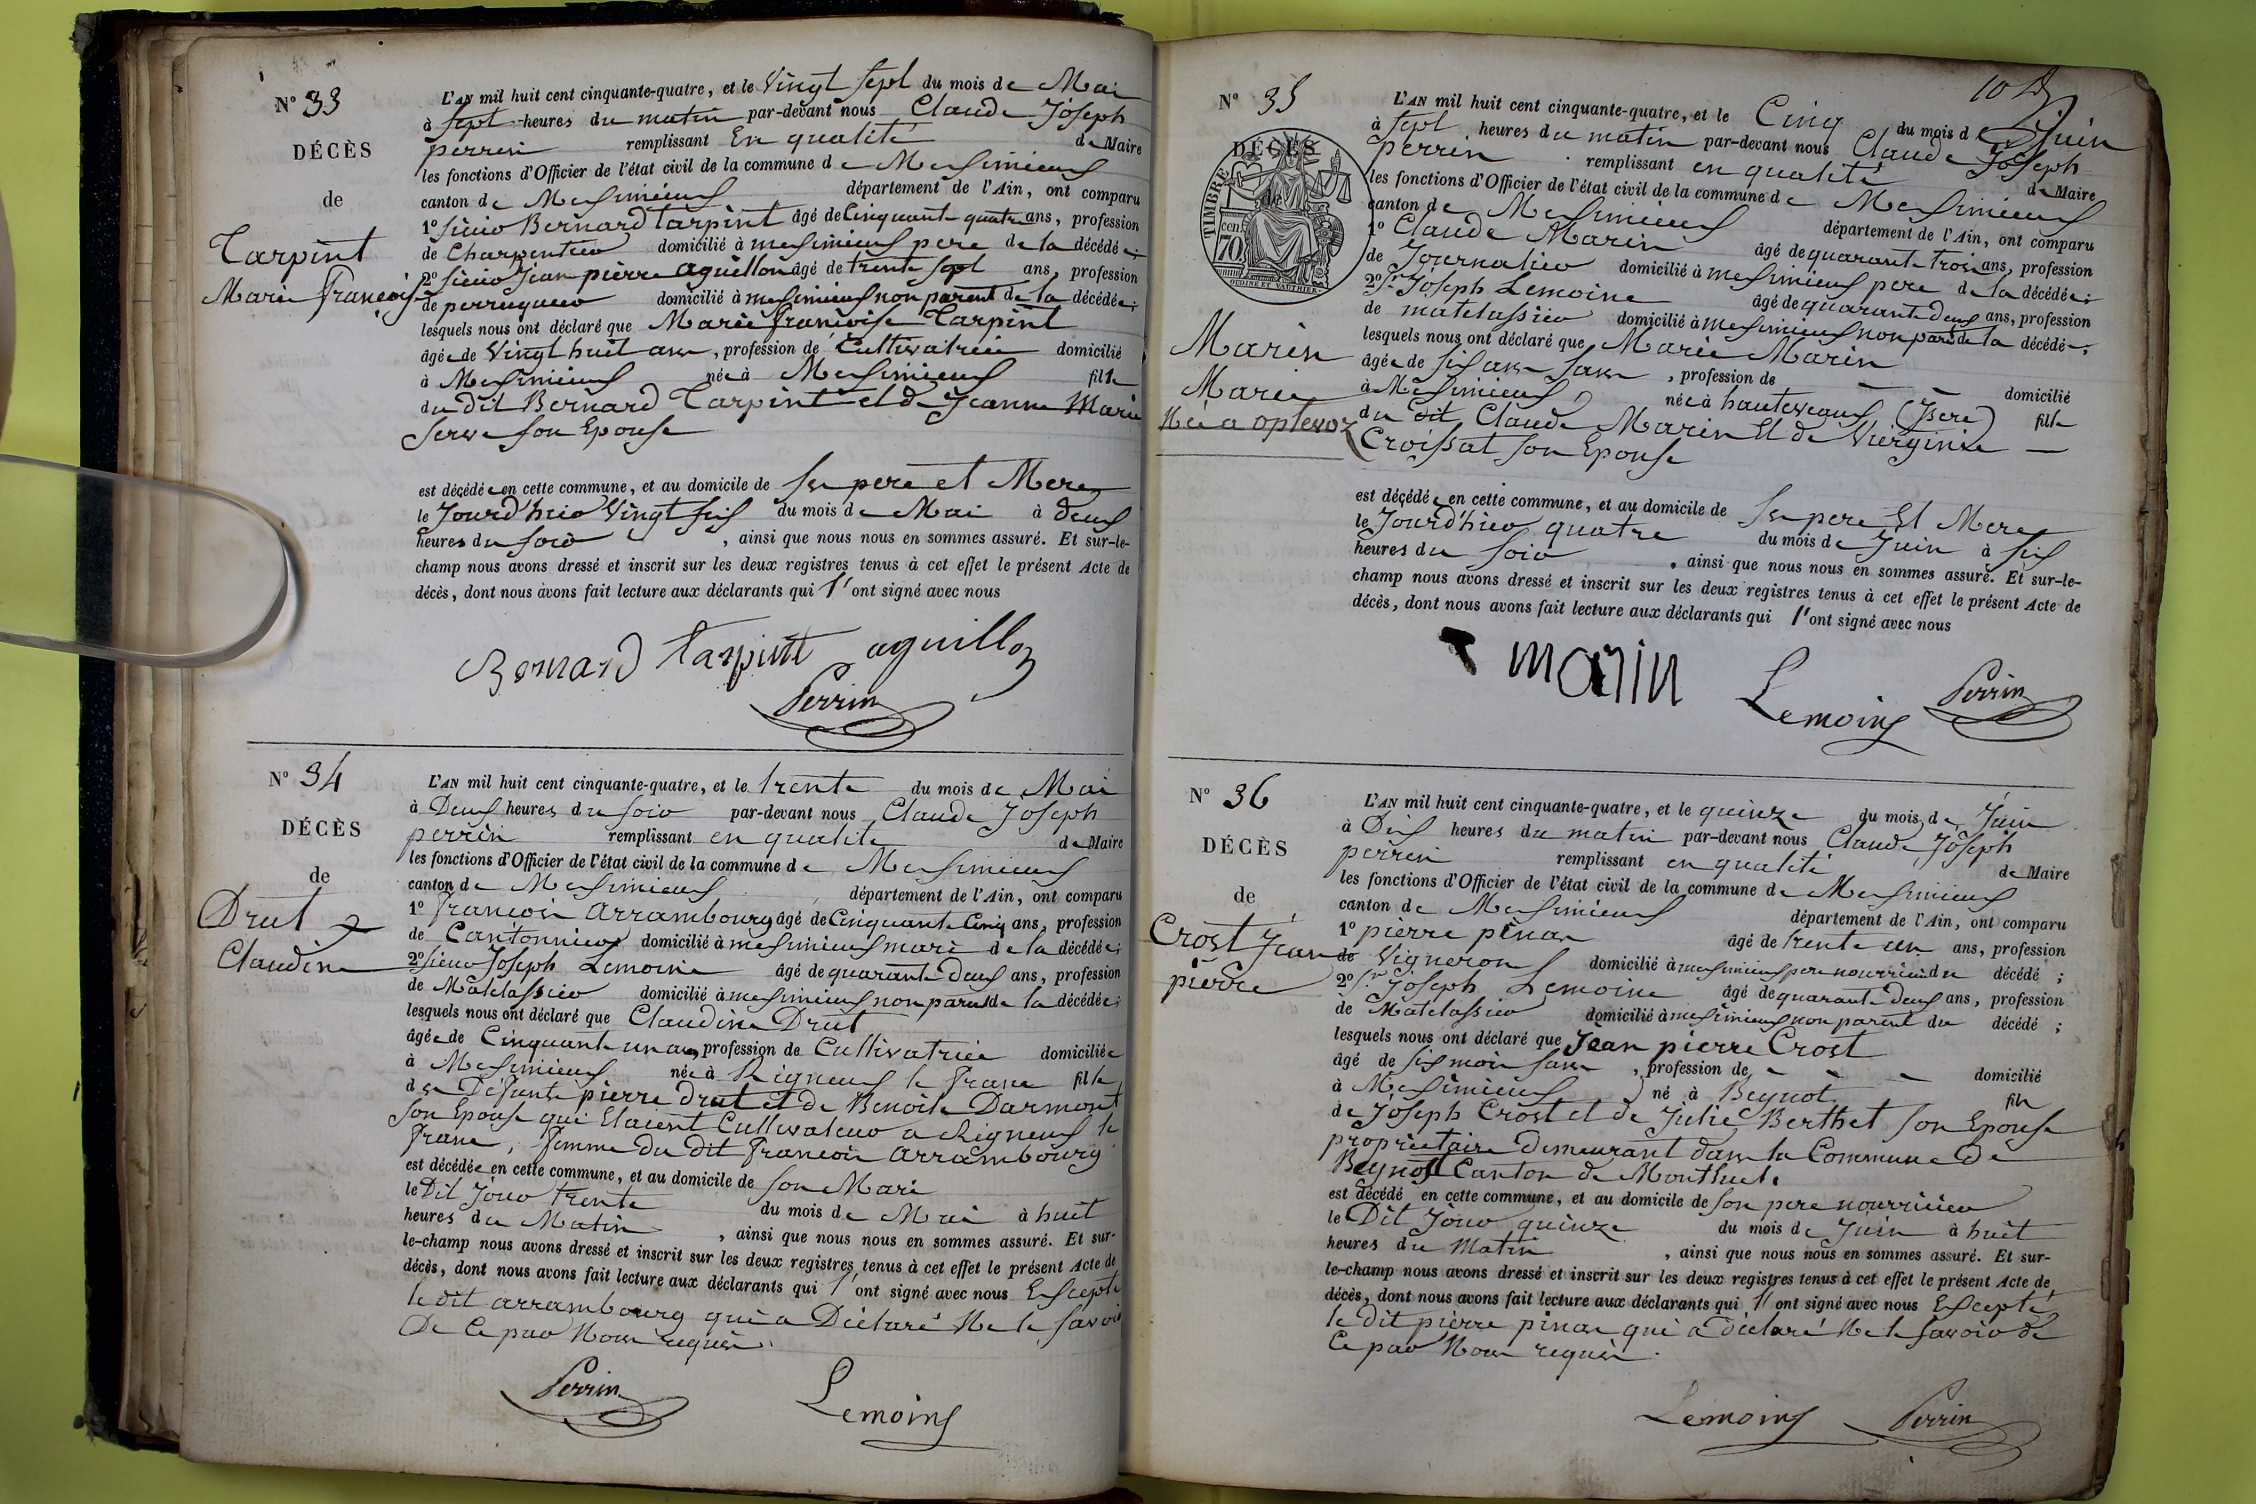 N° 33
DÉCÈS
de
Tarpint
Marie françoise
L'AN mil huit cent cinquante-quatre, et le Vingt sept du mois de Mai
à sept heures du matin par-devant nous Claude Joseph
perrin remplissant En qualité de Maire
les fonctions d'Officier de l'état civil de la commune de Meximieux
canton de Meximieux département de l'Ain, ont comparu
1° sieur Bernard Tarpint âgé de Cinquante quatre ans, profession
de Charpentier domicilié à meximieux pere de la décédée;
2° sieur Jean pierre aguillon âgé de trente sept ans, profession
de perruquier domicilié à meximieux non parent de la décédée;
lesquels nous ont déclaré que Marie françoise Tarpint
âgée de Vingt huit ans, profession de Cultivatrice domicilié
à Meximieux née à Meximieux fille
du dit Bernard Tarpint et de Jeanne Marie
Serve son Epouse
est décédée en cette commune, et au domicile de ses pere et Mere
le Jourd'hier Vingt six du mois de Mai à deux
heures du soir, ainsi que nous nous en sommes assuré. Et sur-le-
champ nous avons dressé et inscrit sur les deux registres tenus à cet effet le présent Acte de
décès, dont nous avons fait lecture aux déclarants qui l'ont signé avec nous
Bernard tarpint aguillon
Perrin
N° 34
DÉCÈS
de
Drut
Claudine
L'AN mil huit cent cinquante-quatre, et le trente du mois de Mai
à Deux heures du soir par-devant nous Claude Joseph
perrin remplissant en qualité de Maire
les fonctions d'Officier de l'état civil de la commune de Meximieux
canton de Meximieux département de l'Ain, ont comparu
1° françois arrambourg âgé de Cinquante Cinq ans, profession
de Cantonnier domicilié à meximieux mari de la décédée;
2° sieur Joseph Lemoine âgé de quarante Deux ans, profession
de Matelassier domicilié à meximieux non parent de la décédée;
lesquels nous ont déclaré que Claudine Drut
âgée de Cinquante un ans, profession de Cultivatrice domiciliée
à Meximieux née à Rigneux le franc fille
des Défunts pierre drut et de Benoîte Darmont
son Epouse qui Etaient Cultivateur a Rigneux le
franc, femme du dit françois arrambourg
est décédée en cette commune, et au domicile de son Mari
le Dit Jour trente du mois de Mai à huit
heures du Matin, ainsi que nous nous en sommes assuré. Et sur-
le-champ nous avons dressé et inscrit sur les deux registres tenus à cet effet le présent Acte de
décès, dont nous avons fait lecture aux déclarants qui l'ont signé avec nous Excepté
le dit arrambourg qui a Déclaré Ne le savoir
De Ce par Nous requis.
Perrin Lemoine
N° 35
DÉCÈS
de
TIMBRE
cen. 70
OUDINÉ ET VAUTHIER
Marin
Marie
Née a optevoz
L'AN mil huit cent cinquante-quatre, et le Cinq du mois de Juin
à sept heures du matin par-devant nous Claude Joseph
perrin remplissant en qualité de Maire
les fonctions d'Officier de l'état civil de la commune de Meximieux
canton de Meximieux département de l'Ain, ont comparu
1° Claude Marin âgé de quarante trois ans, profession
de Journalier domicilié à meximieux pere de la décédée;
2° Sr Joseph Lemoine âgé de quarante Deux ans, profession
de matelassier domicilié à meximieux non part de la décédée;
lesquels nous ont déclaré que Marie Marin
âgée de six ans sans, profession de domicilié
à Meximieux, née à hautevaux (Isere) fille
du Dit Claude Marin Et de Vierginie
Croissat son Epouse
est décédée en cette commune, et au domicile de ses pere Et Mere
le Jourd'hier quatre du mois de Juin à six
heures du soir, ainsi que nous nous en sommes assuré. Et sur-le-
champ nous avons dressé et inscrit sur les deux registres tenus à cet effet le présent Acte de
décès, dont nous avons fait lecture aux déclarants qui l'ont signé avec nous
marin Lemoine Perrin
N° 36
DÉCÈS
de
Crost Jean
pierre
L'AN mil huit cent cinquante-quatre, et le quinze du mois de Juin
à Dix heures du matin par-devant nous Claude Joseph
perrin remplissant en qualité de Maire
les fonctions d'Officier de l'état civil de la commune de Meximieux
canton de Meximieux département de l'Ain, ont comparu
1° pierre pinas âgé de trente un ans, profession
de Vigneron domicilié à meximieux pere nourricier du décédé;
2° Sr Joseph Lemoine âgé de quarante Deux ans, profession
de Matelassier domicilié à meximieux non parent du décédé;
lesquels nous ont déclaré que Jean pierre Crost
âgé de six mois sans, profession de domicilié
à Meximieux né à Beynot fils
de Joseph Crost et de Julie Berthet son Epouse
propriétaire Demeurant dans la Commune de
Beynost Canton de Montluel.
est décédé en cette commune, et au domicile de son pere nourricier
le Dit Jour quinze du mois de Juin à huit
heures du Matin, ainsi que nous nous en sommes assuré. Et sur-
le-champ nous avons dressé et inscrit sur les deux registres tenus à cet effet le présent Acte de
décès, dont nous avons fait lecture aux déclarants qui l'ont signé avec nous Excepté
le Dit pierre pinas qui a déclaré Ne le savoir de
Ce par Nous requis.
Lemoine Perrin